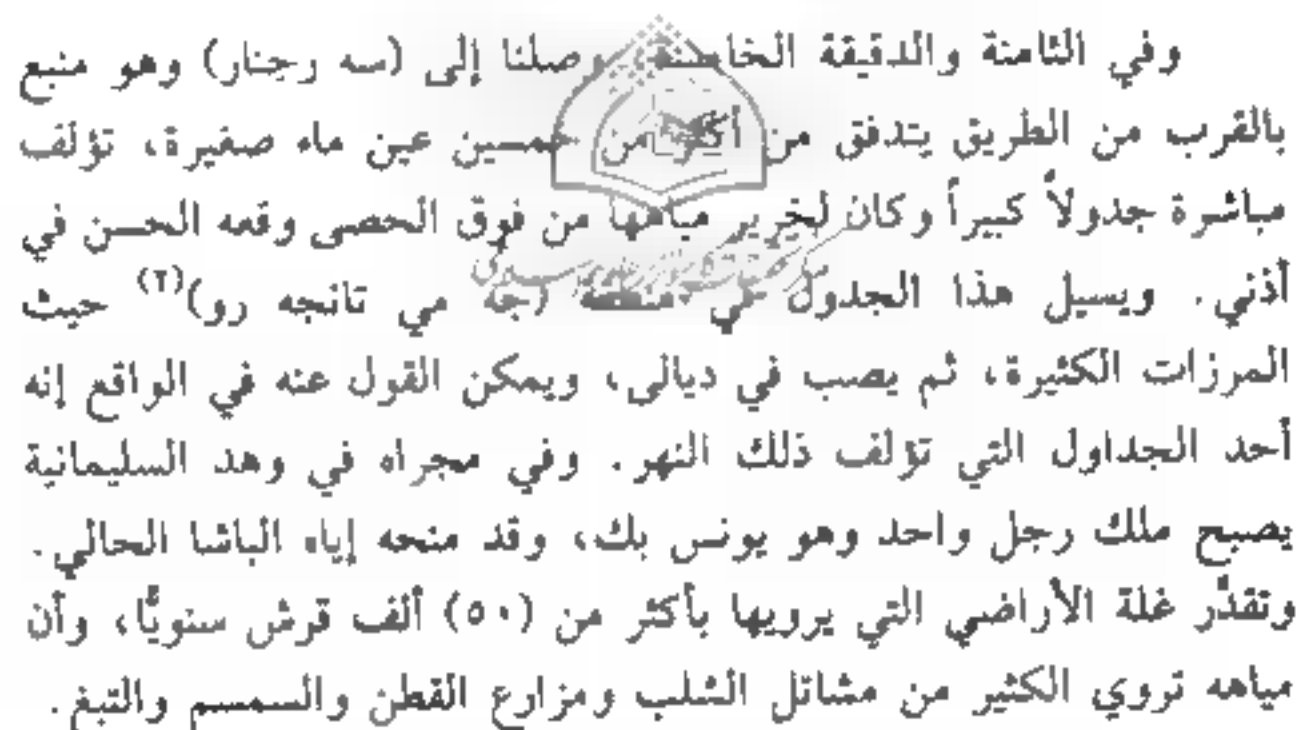 وفي الثامنة والدقيقة الخامسة وصلنا إلى (سه رجنار) وهو منبع
بالقرب من الطريق يتدفق من أكثر من خمسين عين ماء صغيرة، تؤلف
مباشرة جدولاً كبيراً وكان لخرير مياهها من فوق الحصى وقعه الحسن في
أذني. ويسيل هذا الجدول في منطقة (جه مي تانجه رو)(٢) حيث
المرزات الكثيرة، ثم يصب في ديالى، ويمكن القول عنه في الواقع إنه
أحد الجداول التي تؤلف ذلك النهر. وفي مجراه في وهد السليمانية
يصبح ملك رجل واحد وهو يونس بك، وقد منحه إياه الباشا الحالي.
وتقدَّر غلة الأراضي التي يرويها بأكثر من (٥٠) ألف قرش سنويًّا، وأن
مياهه تروي الكثير من مشاتل الشلب ومزارع القطن والسمسم والتبغ.